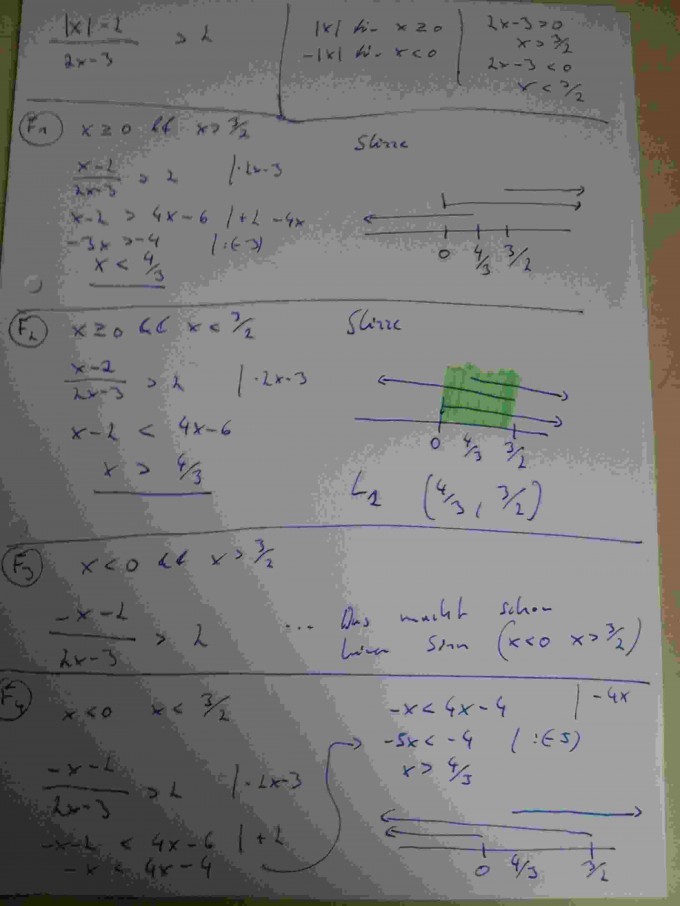 |x| - 2 / 2x-3 > 2
|x| für x ≥ 0
-|x| für x < 0
2x-3 > 0
x > 3/2
2x-3 < 0
x < 3/2
F1 x ≥ 0 && x > 3/2
Skizze
x-2 / 2x-3 > 2 | ·2x-3
x-2 > 4x-6 | +2 -4x
-3x > -4 | :(-3)
x < 4/3
0 4/3 3/2
F2 x ≥ 0 && x < 3/2
Skizze
x-2 / 2x-3 > 2 | ·2x-3
x-2 < 4x-6
x > 4/3
0 4/3 3/2
L2 (4/3, 3/2)
F3 x < 0 && x > 3/2
-x-2 / 2x-3 > 2
... Das macht schon
keinen Sinn (x<0 x>3/2)
F4 x < 0 x < 3/2
-x-2 / 2x-3 > 2 | ·2x-3
-x-2 < 4x-6 | +2
-x < 4x-4
-x < 4x-4 | -4x
-5x < -4 | :(-5)
x > 4/3
0 4/3 3/2